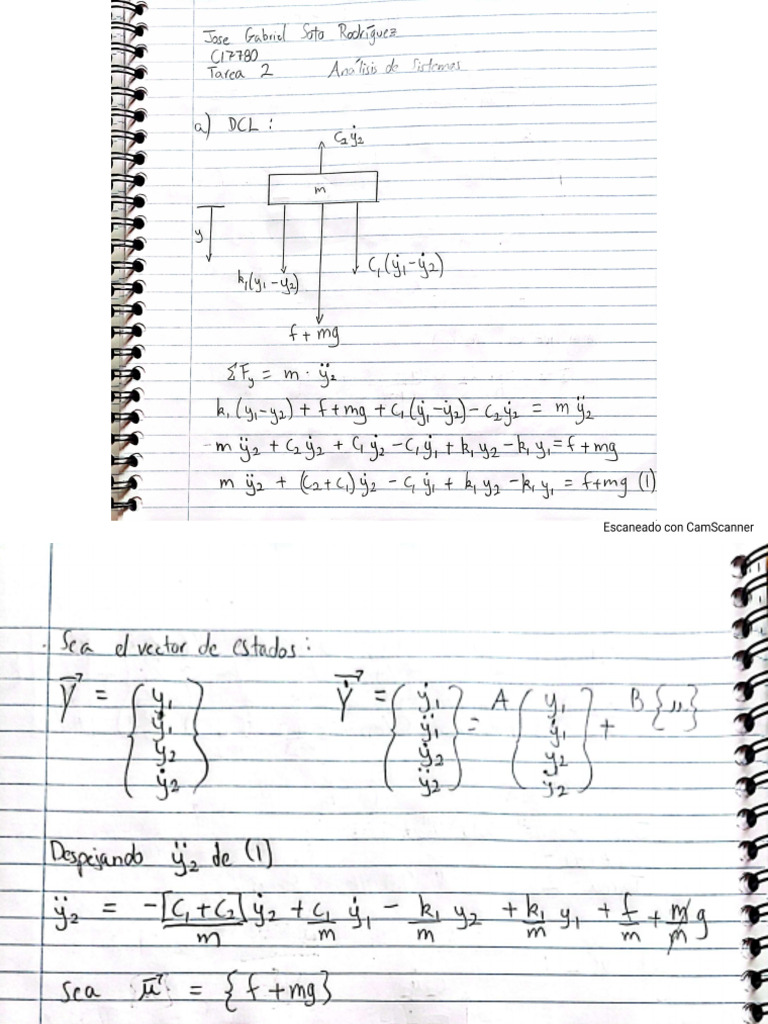 Jose Gabriel Soto Rodríguez
C17780
Tarea 2 Análisis de Sistemas
a) DCL :
c₂ẏ₂
m
y
k₁(y₁-y₂)
c₁(ẏ₁-ẏ₂)
f + mg
ΣFy = m · ÿ₂
k₁(y₁-y₂) + f + mg + c₁(ẏ₁-ẏ₂) - c₂ẏ₂ = m ÿ₂
m ÿ₂ + c₂ẏ₂ + c₁ẏ₂ - c₁ẏ₁ + k₁y₂ - k₁y₁ = f + mg
m ÿ₂ + (c₂+c₁)ẏ₂ - c₁ẏ₁ + k₁y₂ - k₁y₁ = f+mg (1)
Escaneado con CamScanner
Sea el vector de estados:
Y⃗ = { y₁ ẏ₁ y₂ ẏ₂ } Ẏ⃗ = { ẏ₁ ÿ₁ ẏ₂ ÿ₂ } = A { y₁ ẏ₁ y₂ ẏ₂ } + B { u }
Despejando ÿ₂ de (1)
ÿ₂ = -[c₁+c₂]/m ẏ₂ + c₁/m ẏ₁ - k₁/m y₂ + k₁/m y₁ + f/m + m/m g
sea u⃗ = {f + mg}